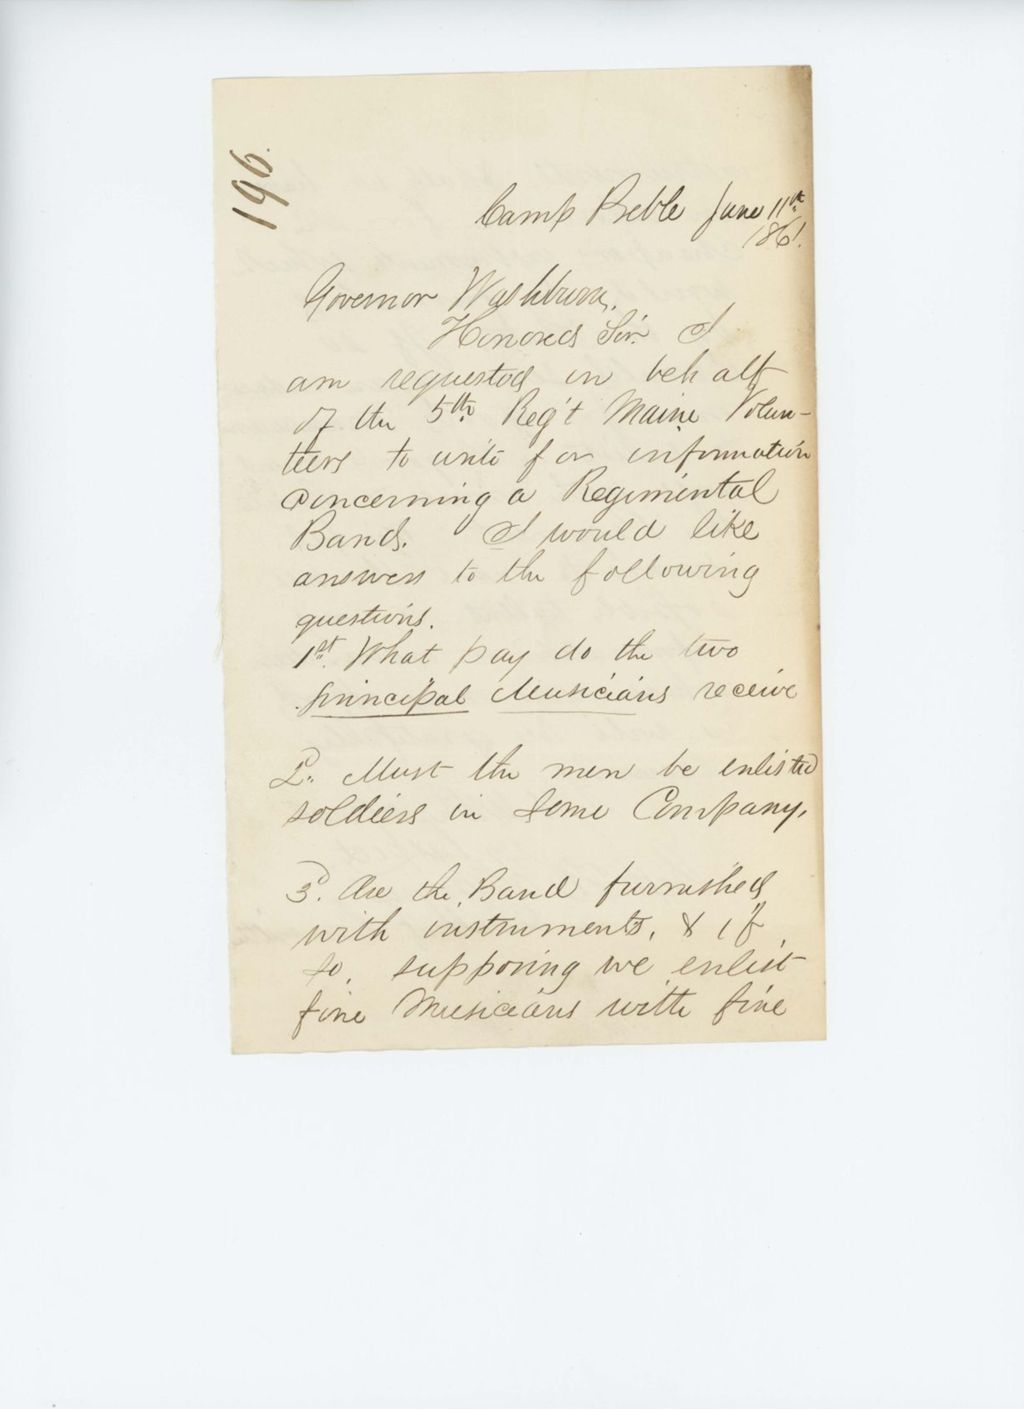 196.
Camp Preble June 11th
1861.
Governor Washburn,
Honored Sir. I
am requested in behalf
of the 5th Reg't Maine Volun-
teers to write for information
concerning a Regimental
Band. I would like
answers to the following
questions.
1st. What pay do the two
principal Musicians receive
2d. Must the men be enlisted
soldiers in some Company,
3d. Are the Band furnished
with instruments, & if
so, supposing we enlist
fine Musicians with fine